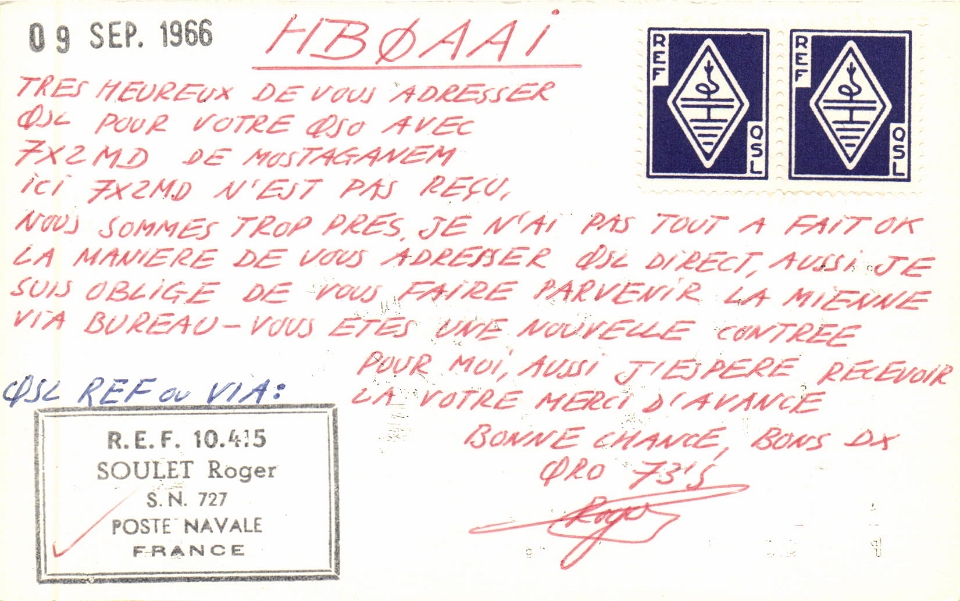 09 SEP. 1966
HBØAAi
REF QSL
REF QSL
TRES HEUREUX DE VOUS ADRESSER
QSL POUR VOTRE QSO AVEC
7X2MD DE MOSTAGANEM
ICI 7X2MD N'EST PAS REÇU,
NOUS SOMMES TROP PRES. JE N'AI PAS TOUT A FAIT OK
LA MANIERE DE VOUS ADRESSER QSL DIRECT, AUSSI JE
SUIS OBLIGE DE VOUS FAIRE PARVENIR LA MIENNE
VIA BUREAU - VOUS ETES UNE NOUVELLE CONTREE
POUR MOI, AUSSI J'ESPERE RECEVOIR
LA VOTRE MERCI D'AVANCE
BONNE CHANCE, BONS DX
QRO 73'S
Roger
QSL REF ou VIA:
R.E.F. 10.415
SOULET Roger
S.N. 727
POSTE NAVALE
FRANCE